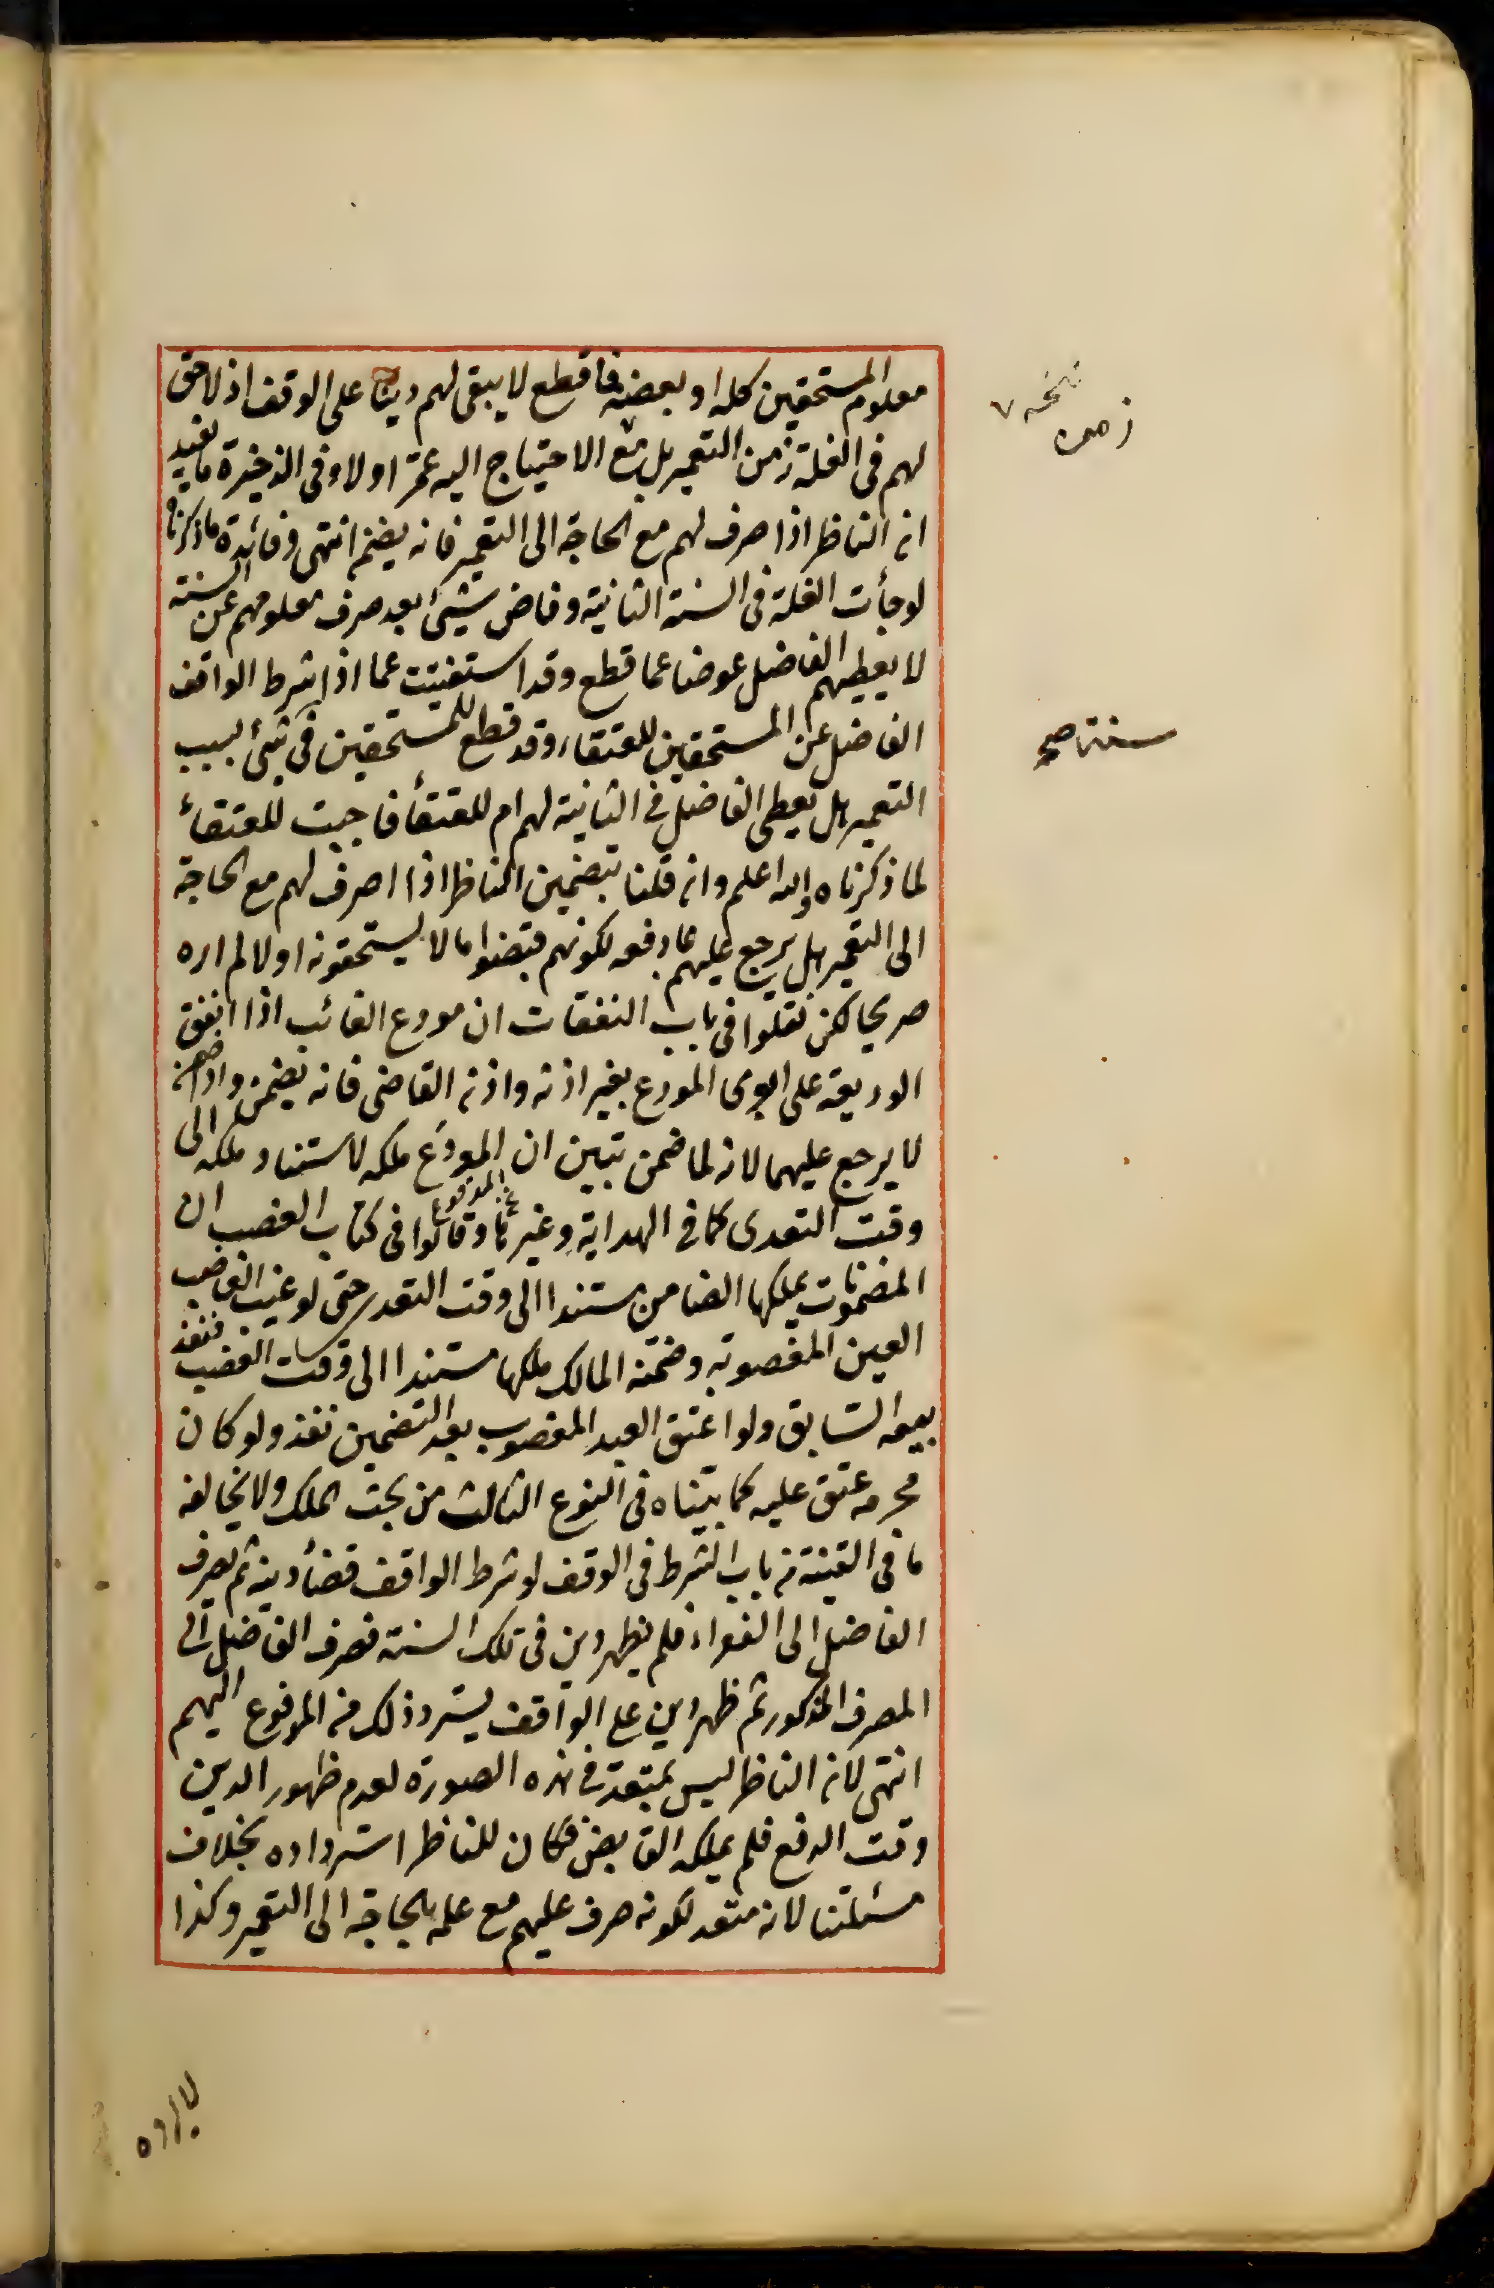 معلوم المستحقين كله او بعضه فما قطع لا يبقى لهم دينا على الوقف اذ لا حق
لهم في الغلة زمن التعمير بل مع الاحتياج اليه عمّر اولا وفي الذخيرة ما يفيد
ان الناظر اذا صرف لهم مع الحاجة الى التعمير فانه يضمن انتهى وفائدة ما ذكرناه
لو جأت الغلة في السنة الثانية وفاض شيئ بعد صرف معلومهم عن السنة
لا يعطيهم الفاضل عوضا عما قطع وقد استفتيت عما اذا شرط الواقف
الفاضل عن المستحقين للعتقاء وقد قطع للمستحقين في شئ بسبب
التعمير هل يعطى الفاضل في الثانية لهم ام للعتقأ فاجبت للعتقأ
لما ذكرناه والله اعلم وان قلنا بتضمين الناظر اذا اصرف لهم مع الحاجة
الى التعمير هل يرجع عليهم بما دفعه لكونهم قبضوا ما لا يستحقونه او لا لم اره
صريحا لكن نقلوا في باب النفقات ان مودع الغائب اذا انفق
الوديعة على ابوى المودع بغير اذنه واذن القاضى فانه يضمن واذا ضمن
لا يرجع عليهما لانه لما ضمن تبين ان المودَع ملكه لاستناد ملكه الى
وقت التعدى كما في الهداية وغيرها وقالوا في كتاب الغصب ان
المضمونات يملكها الضامن مستندا الى وقت التعدى حتى لو غيب الغاصب
العين المغصوبة وضمنه المالك ملكها مستندا الى وقت الغصب فنفذ
بيعه السابق ولو اعتق العبد المغصوب بعد التضمين نفذ ولو كان
محرمه عتق عليه كما بيّناه في النوع الثالث من بحث الملك ولا يخالفه
ما في القنية من باب الشرط في الوقف لو شرط الواقف قضأ دينه ثم يصرف
الفاضل الى الفقراء فلم يظهر دين في تلك السنة فصرف الفاضل الى
المصرف المذكور ثم ظهر دين على الواقف يسترد ذلك من المدفوع اليهم
انتهى لان الناظر ليس بمتعدّ في هذه الصورة لعدم ظهور الدين
وقت الدفع فلم يملكه القابض فكان للناظر استرداده بخلاف
مسئلتنا لانه متعد لكونه صرف عليهم مع علمه بالحاجة الى التعمير وكذا
نسخه
زمن